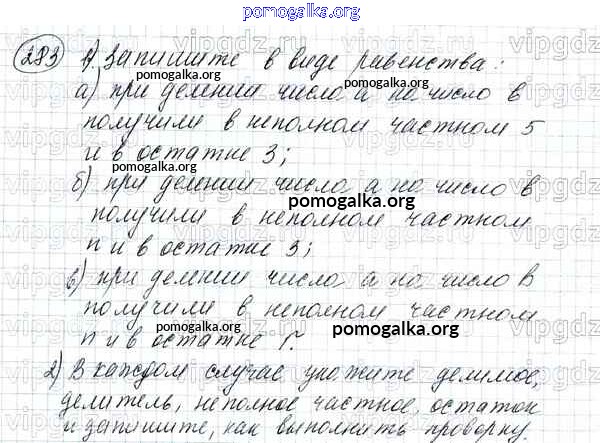 pomogalka.org
283 1) Запишите в виде равенства:
pomogalka.org
а) при делении числа а на число в
получили в неполном частном 5
и в остатке 3;
pomogalka.org
б) при делении числа а на число в
pomogalka.org
получили в неполном частном
n и в остатке 3;
в) при делении числа а на число в
получили в неполном частном
n и в остатке r.
pomogalka.org pomogalka.org
2) В каждом случае укажите делимое,
делитель, неполное частное, остаток
и запишите, как выполнить проверку
pomogalka.org